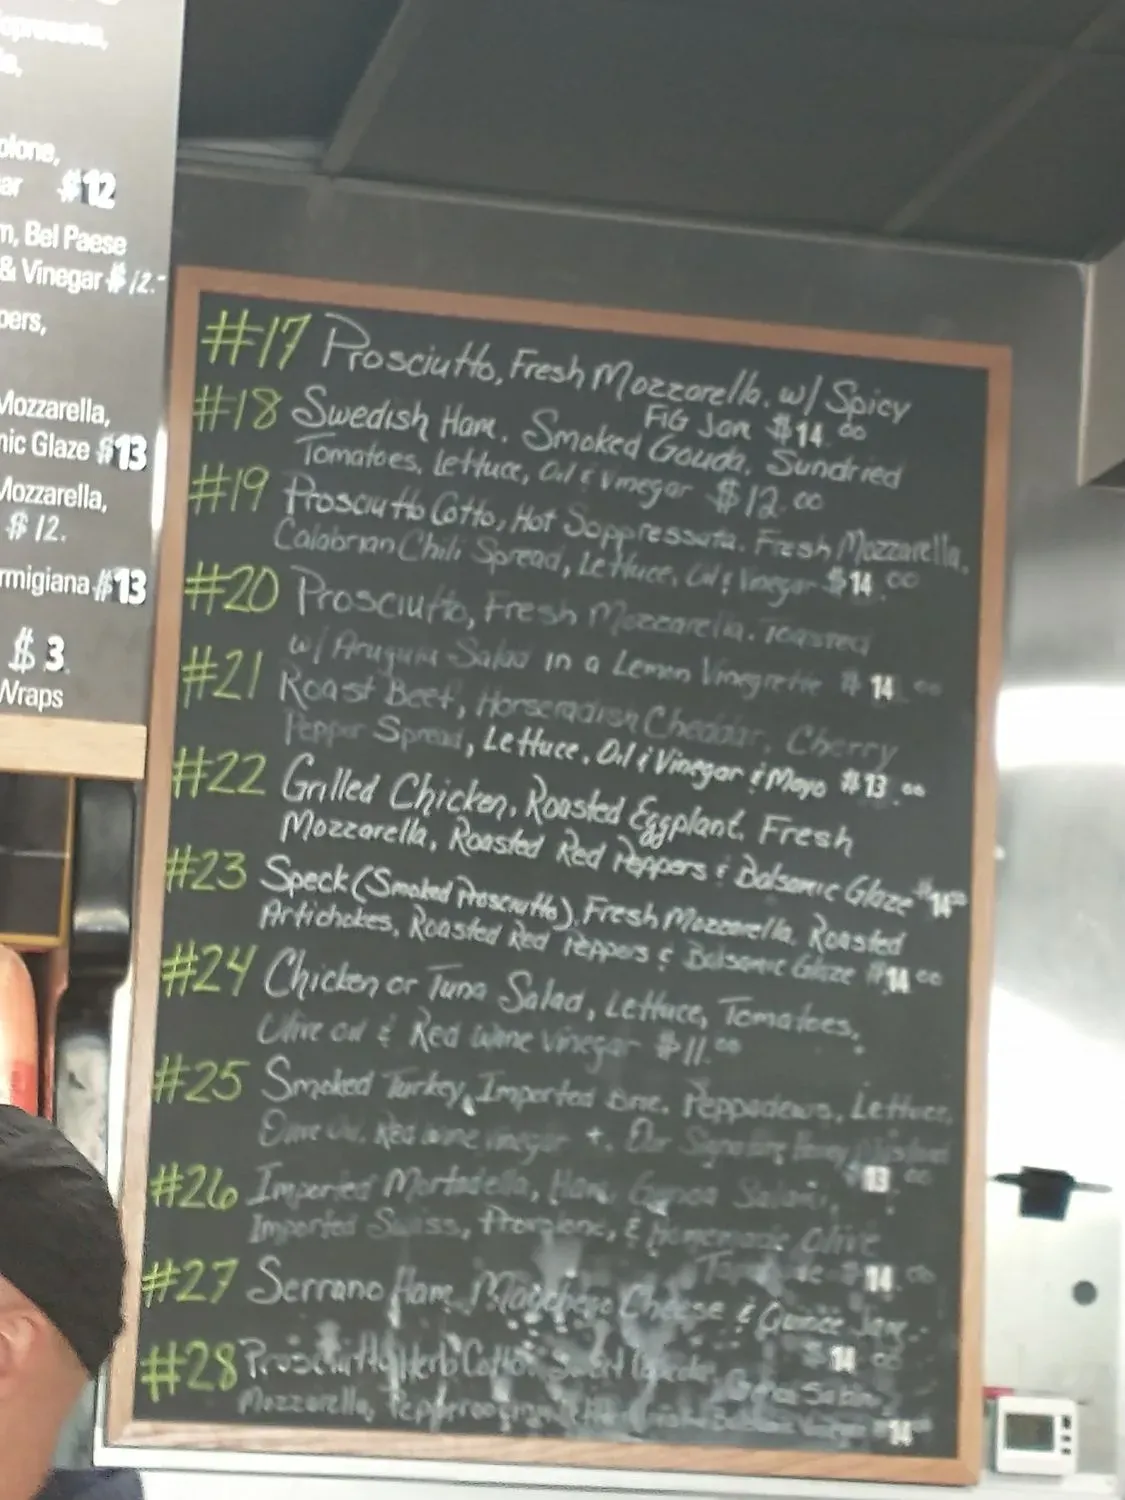 opressata,
olone,
ar $12
m, Bel Paese
& Vinegar $12.-
pers,
Mozzarella,
nic Glaze $13
Mozzarella,
$12.
rmigiana $13
$3.
Wraps
#17 Prosciutto, Fresh Mozzarella. w/ Spicy
FiG Jam $14.00
#18 Swedish Ham. Smoked Gouda. Sundried
Tomatoes, Lettuce, Oil & Vinegar $12.00
#19 Prosciutto Cotto, Hot Soppressata. Fresh Mozzarella,
Calabrian Chili Spread, Lettuce, Oil & Vinegar $14.00
#20 Prosciutto, Fresh Mozzarella. Toasted
w/ Arugula Salad in a Lemon Vinegrette $14.00
#21 Roast Beef, Horseradish Cheddar, Cherry
Pepper Spread, Lettuce, Oil & Vinegar & Mayo $13.00
#22 Grilled Chicken, Roasted Eggplant, Fresh
Mozzarella, Roasted Red Peppers & Balsamic Glaze $14.00
#23 Speck (Smoked Prosciutto), Fresh Mozzarella, Roasted
Artichokes, Roasted Red Peppers & Balsamic Glaze $14.00
#24 Chicken or Tuna Salad, Lettuce, Tomatoes,
Olive oil & Red wine vinegar $11.00
#25 Smoked Turkey, Imported Brie, Peppadews, Lettuce,
Olive Oil, Red wine vinegar +. Our Signature Honey Mustard
$13.00
#26 Imported Mortadella, Ham, Genoa Salami,
Imported Swiss, Provolone, & Homemade Olive
Tapenade $14.00
#27 Serrano Ham, Manchego Cheese & Quince Jam.
$14.00
#28 Prosciutto, Herb Cotto, Sweet Genoa Salami,
Mozzarella, Balsamic Vinegar $14